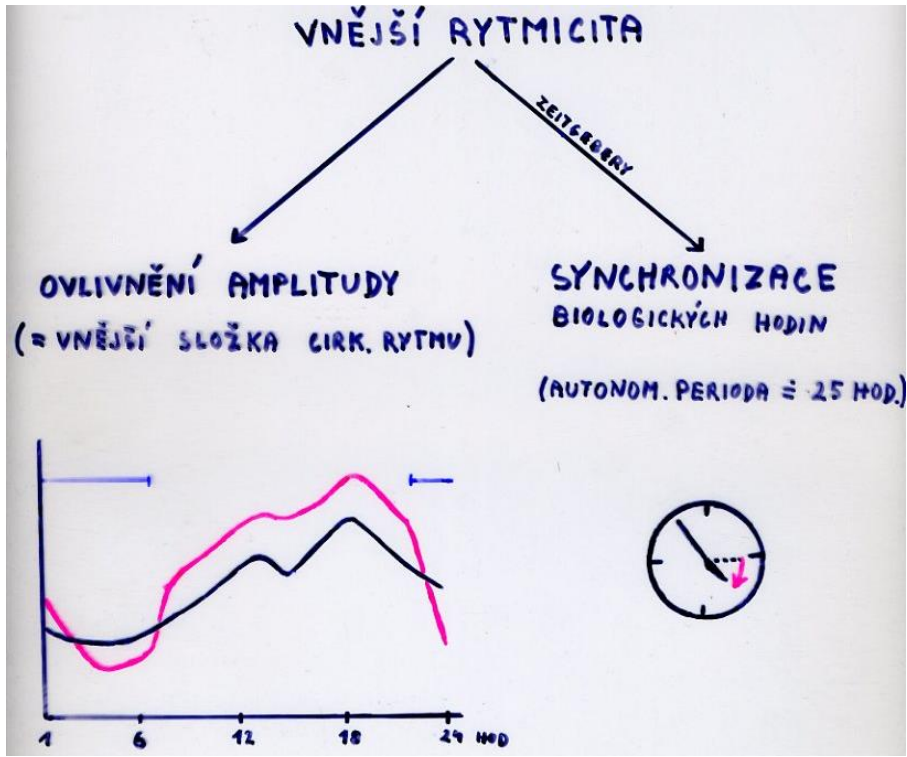 VNĚJŠÍ RYTMICITA
ZEITGEBERY
OVLIVNĚNÍ AMPLITUDY
(= VNĚJŠÍ SLOŽKA CIRK. RYTMU)
SYNCHRONIZACE
BIOLOGICKÝCH HODIN
(AUTONOM. PERIODA ≐ 25 HOD.)
1 6 12 18 24 HOD